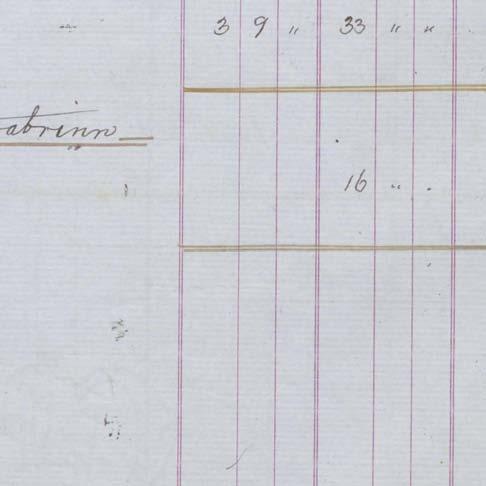 " 3 9 " 33 " "
"
16 " "